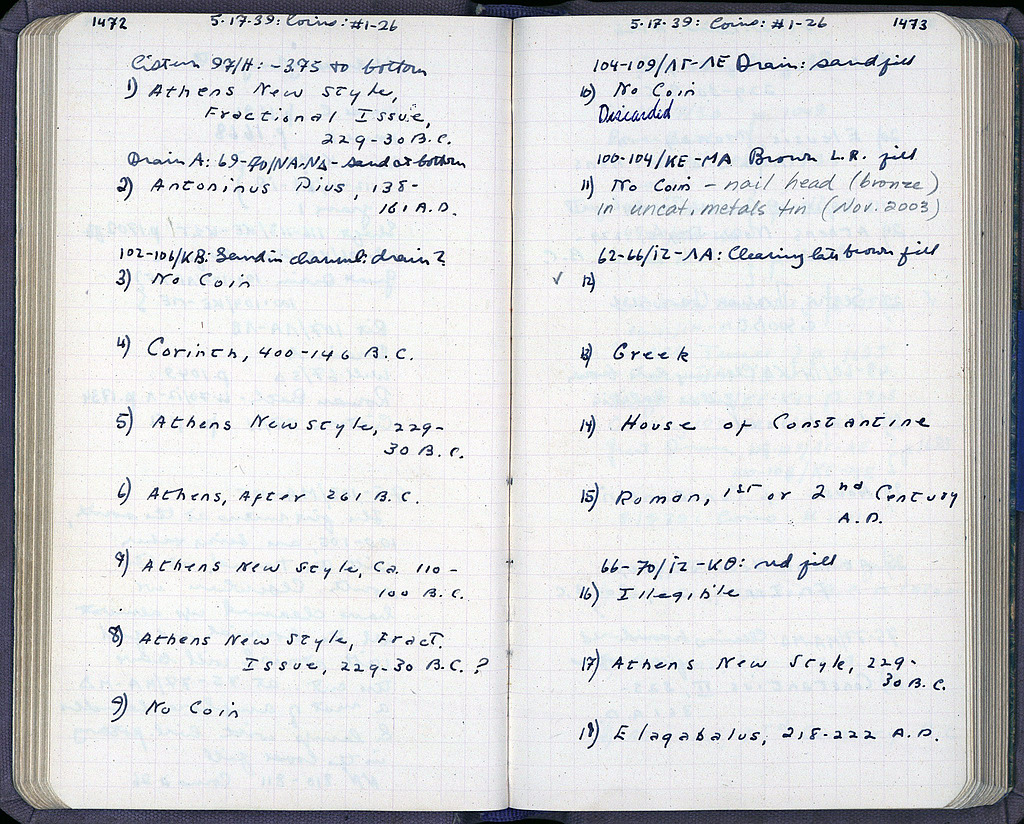 1472
5-17-39: Coins: #1-26
Cistern 97/H: -3.75 to bottom
1) Athens New Style,
Fractional Issue,
229-30 B.C.
Drain A: 69-70/NA-NΔ - sand at bottom
2) Antoninus Pius, 138-
161 A.D.
102-106/KB: Sand in channel: drain?
3) No Coin
4) Corinth, 400-146 B.C.
5) Athens New Style, 229-
30 B.C.
6) Athens, After 261 B.C.
7) Athens New Style, Ca. 110-
100 B.C.
8) Athens New Style, Fract.
Issue, 229-30 B.C.?
9) No Coin
5-17-39: Coins: #1-26
1473
104-109/ΛΓ-ΛE Drain: sand fill
10) No Coin
Discarded
100-104/KE-MA Brown L.R. fill
11) No Coin - nail head (bronze)
in uncat. metals tin (Nov. 2003)
62-66/IZ-ΛA: Clearing late brown fill
✓ 12)
13) Greek
14) House of Constantine
15) Roman, 1st or 2nd Century
A.D.
66-70/IZ-KΘ: red fill
16) Illegible
17) Athens New Style, 229-
30 B.C.
18) Elagabalus, 218-222 A.D.